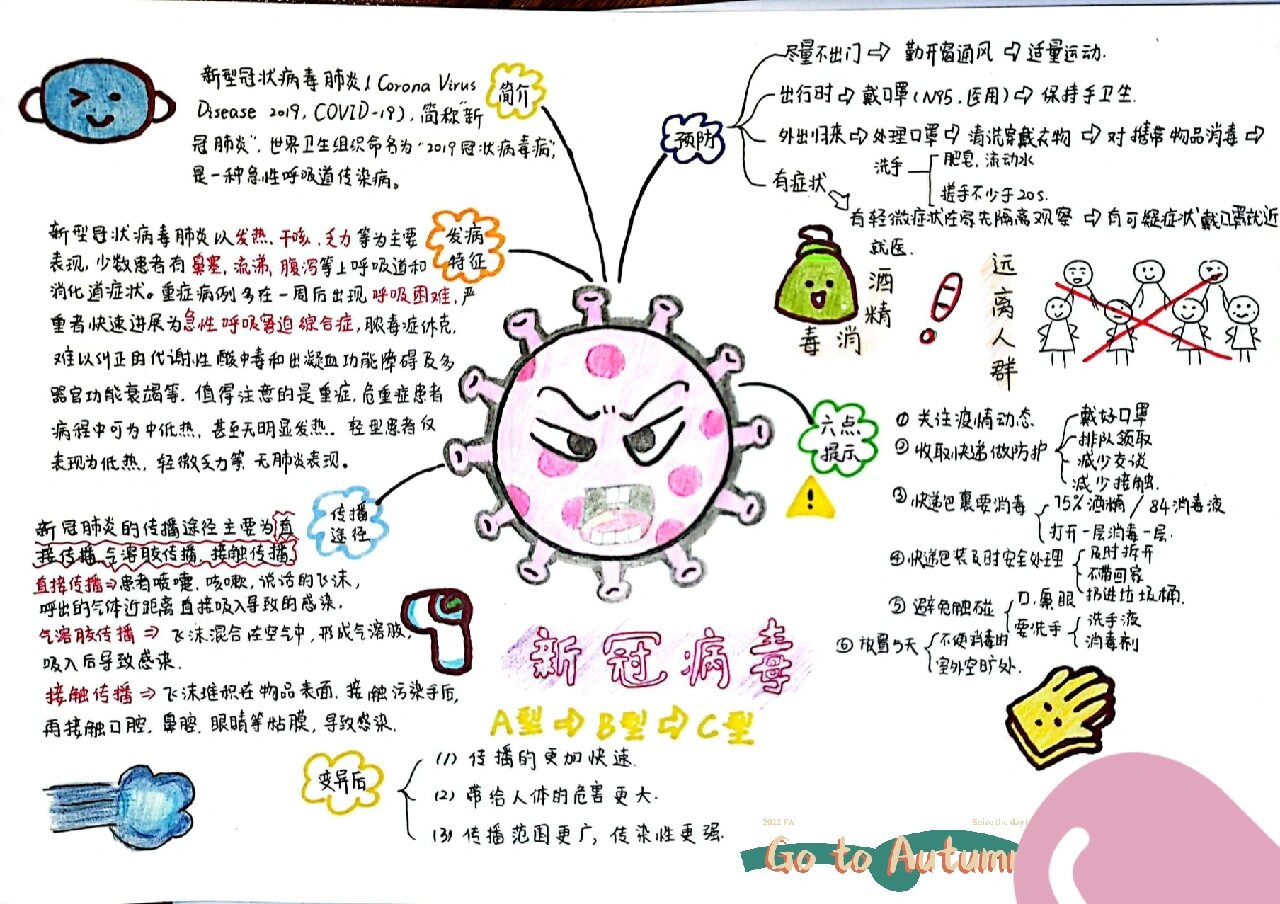 简介
新型冠状病毒肺炎(Corona Virus
Disease 2019, COVID-19), 简称"新
冠肺炎", 世界卫生组织命名为"2019冠状病毒病",
是一种急性呼吸道传染病。
发病
特征
新型冠状病毒肺炎以发热、干咳、乏力等为主要
表现, 少数患者有鼻塞, 流涕, 腹泻等上呼吸道和
消化道症状。重症病例多在一周后出现呼吸困难, 严
重者快速进展为急性呼吸窘迫综合症, 脓毒症休克,
难以纠正的代谢性酸中毒和出凝血功能障碍及多
器官功能衰竭等. 值得注意的是重症, 危重症患者
病程中可为中低热, 甚至无明显发热. 轻型患者仅
表现为低热, 轻微乏力等 无肺炎表现。
传播
途径
新冠肺炎的传播途径主要为直
接传播, 气溶胶传播, 接触传播.
直接传播⇒患者喷嚏, 咳嗽, 说话的飞沫,
呼出的气体近距离直接吸入导致的感染.
气溶胶传播 ⇒ 飞沫混合在空气中, 形成气溶胶,
吸入后导致感染.
接触传播 ⇒ 飞沫堆积在物品表面, 接触污染手后,
再接触口腔, 鼻腔, 眼睛等粘膜, 导致感染.
预防
尽量不出门 ⇨ 勤开窗通风 ⇨ 适量运动.
出行时 ⇨ 戴口罩(N95, 医用) ⇨ 保持手卫生.
外出归来 ⇨ 处理口罩 ⇨ 清洗穿戴衣物 ⇨ 对携带物品消毒 ⇨
洗手
肥皂, 流动水
搓手不少于20s.
有症状
有轻微症状在家先隔离观察 ⇨ 有可疑症状戴口罩就近
就医.
酒精
消毒
远离人群
六点
提示
① 关注疫情动态
② 收取快递做防护
戴好口罩
排队领取
减少交谈
减少接触.
③ 快递包裹要消毒
75%酒精 / 84消毒液
打开一层消毒一层.
④ 快递包装及时安全处理
及时拆开
不带回家
扔进垃圾桶.
⑤ 避免触碰
口, 鼻眼
要洗手
洗手液
消毒剂
⑥ 放置5天
不便消毒的
室外空旷处.
新冠病毒
A型⇨B型⇨C型
变异后
(1) 传播的更加快速.
(2) 带给人体的危害更大.
(3) 传播范围更广, 传染性更强.
2022 FW
Seize the day
Go to Autumn